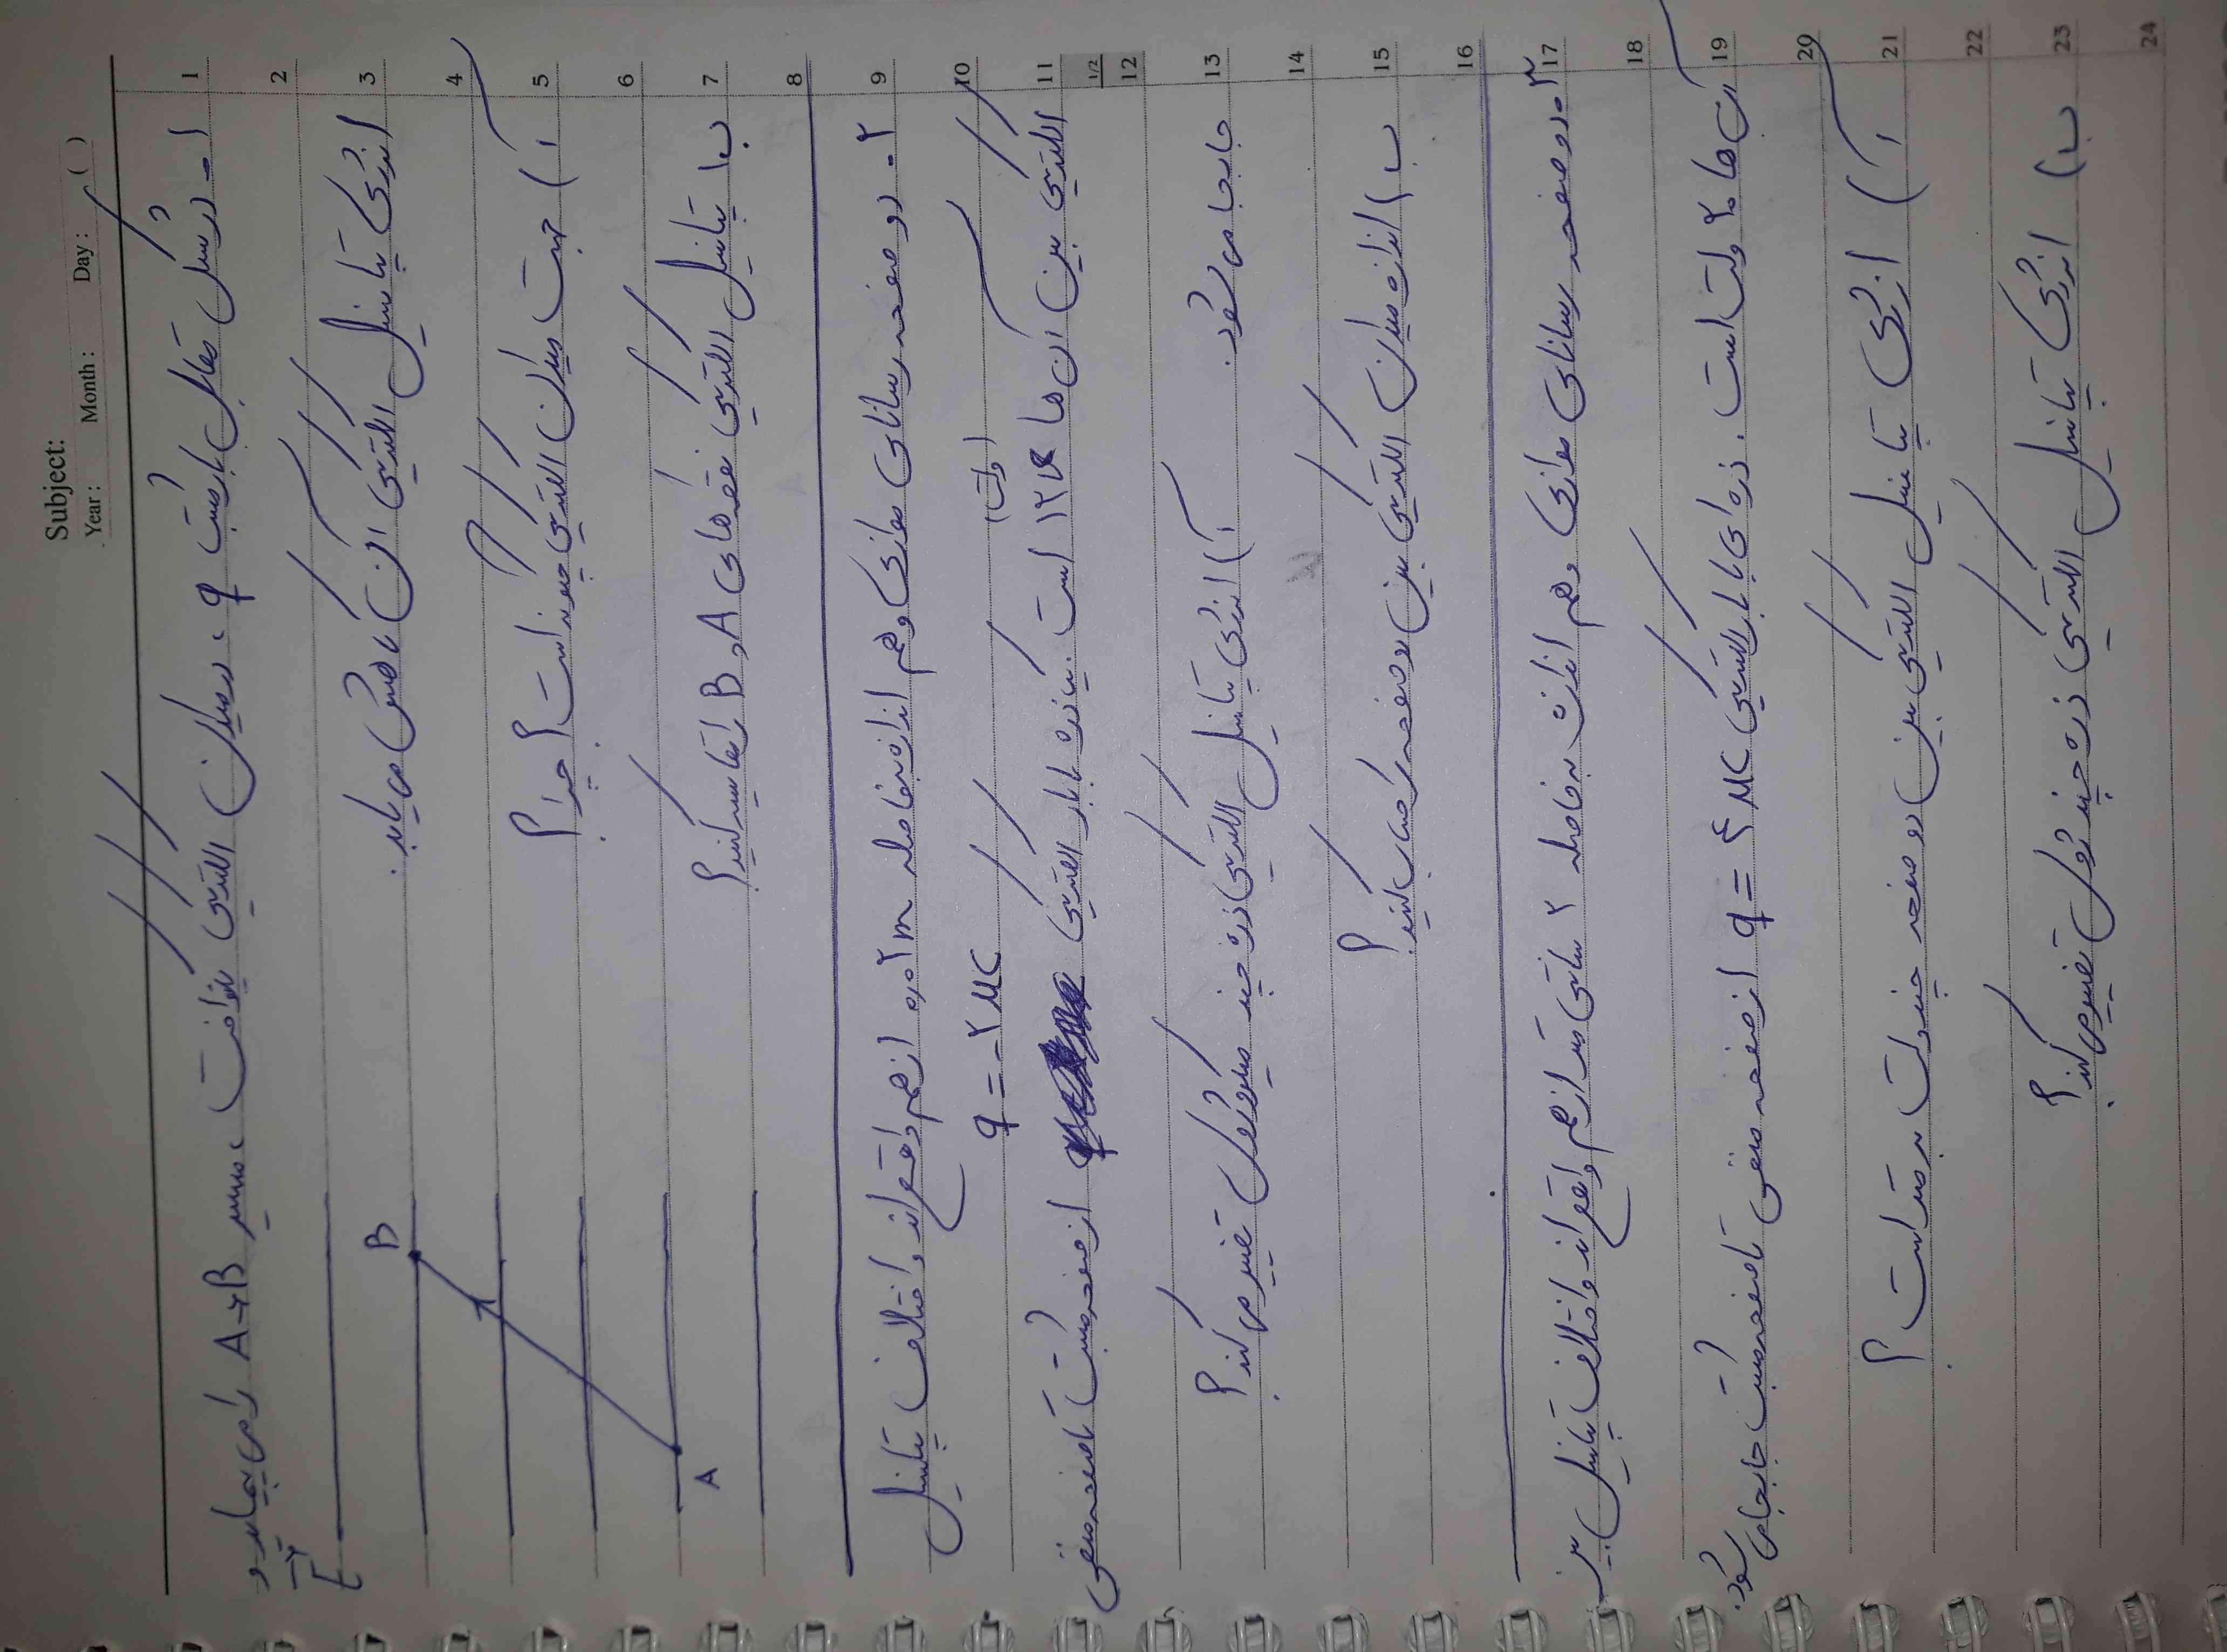 Subject:
Year: Month: Day: ( )
۱- در شکل مقابل بار مثبت q، در میدان الکتریکی یکنواخت، مسیر A→B را می‌پیماید و
انرژی پتانسیل الکتریکی آن کاهش می‌یابد.
E
B
آ) جهت میدان الکتریکی چگونه است؟ چرا؟
ب) پتانسیل الکتریکی نقطه‌های A و B را مقایسه کنید؟
A
۲- دو صفحه رسانای موازی و هم اندازه به فاصله ۰٫۲m از هم واقع اند و اختلاف پتانسیل
(ولت) q = -۲ μC
الکتریکی بین آن ها است. یک ذره با بار الکتریکی از صفحه مثبت تا صفحه منفی
جابجا می‌شود.
آ) انرژی پتانسیل الکتریکی ذره چند میکروژول تغییر می‌کند؟
ب) اندازه میدان الکتریکی بین دو صفحه را حساب کنید؟
۳- دو صفحه رسانای موازی و هم اندازه به فاصله ۲ سانتی متر از هم واقع اند و اختلاف پتانسیل بین
آن ها ۲۰ ولت است. ذره‌ای با بار الکتریکی q = ۴ μC از صفحه منفی تا صفحه مثبت جابجا می‌شود.
آ) انرژی پتانسیل الکتریکی بین دو صفحه چند ولت بر متر است؟
ب) انرژی پتانسیل الکتریکی ذره چند ژول تغییر می‌کند؟
1
2
3
4
5
6
7
8
9
10
11
1/2
12
13
14
15
16
17
18
19
20
21
22
23
24